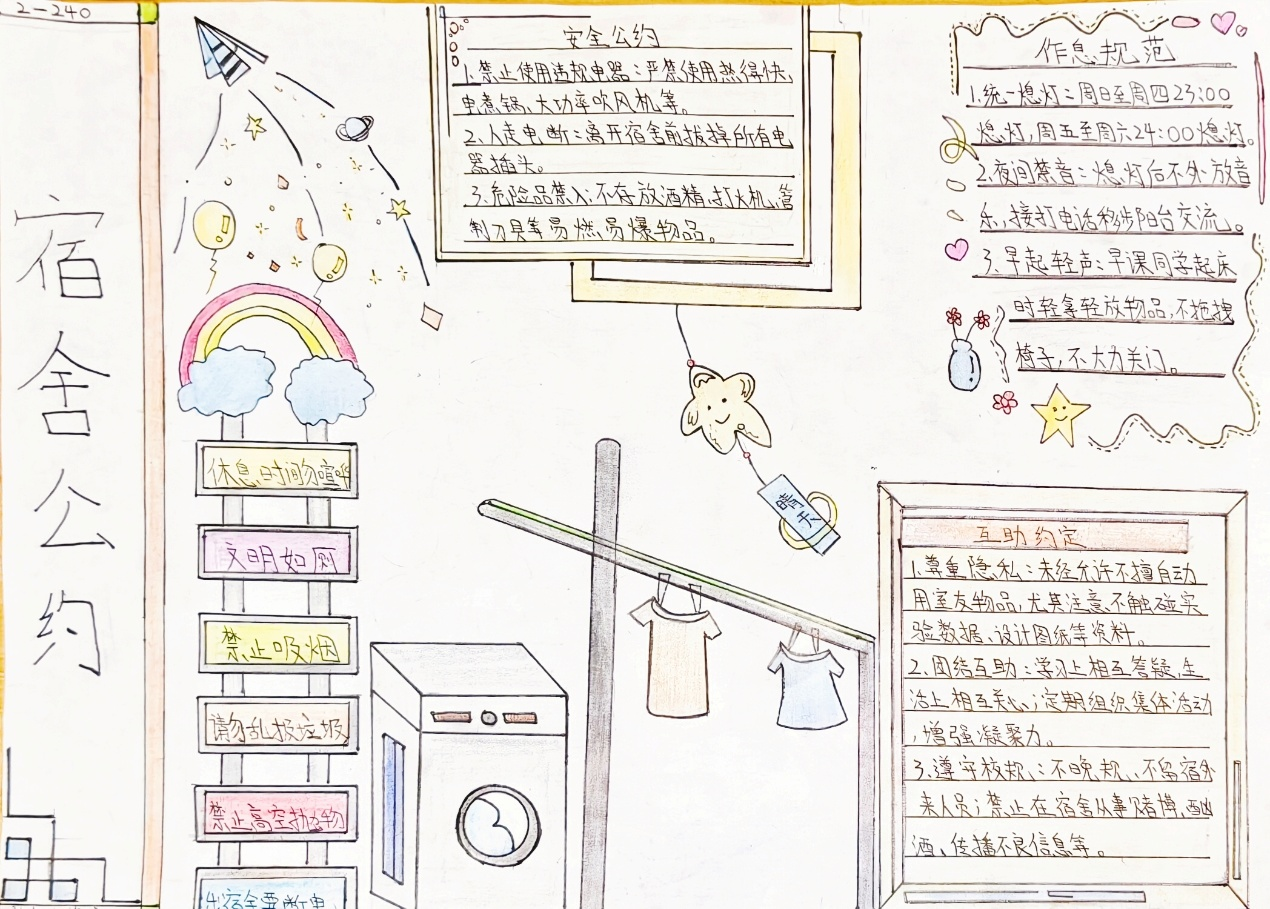 2-240
宿舍公约
安全公约
1.禁止使用违规电器：严禁使用热得快、
电煮锅、大功率吹风机等。
2.人走电断：离开宿舍前拔掉所有电
器插头。
3.危险品禁入：不存放酒精、打火机、管
制刀具等易燃易爆物品。
作息规范
1.统一熄灯：周日至周四23:00
熄灯，周五至周六24:00熄灯。
2.夜间禁音：熄灯后不外放音
乐，接打电话移步阳台交流。
3.早起轻声：早课同学起床
时轻拿轻放物品，不拖拽
椅子，不大力关门。
休息时间勿喧哗
文明如厕
禁止吸烟
请勿乱扔垃圾
禁止高空抛物
出宿舍要断电
晴天
互助约定
1.尊重隐私：未经允许不擅自动
用室友物品，尤其注意不触碰实
验数据、设计图纸等资料。
2.团结互助：学习上相互答疑，生
活上相互关心；定期组织集体活动
，增强凝聚力。
3.遵守校规：不晚规、不留宿外
来人员；禁止在宿舍从事赌博，酗
酒、传播不良信息等。